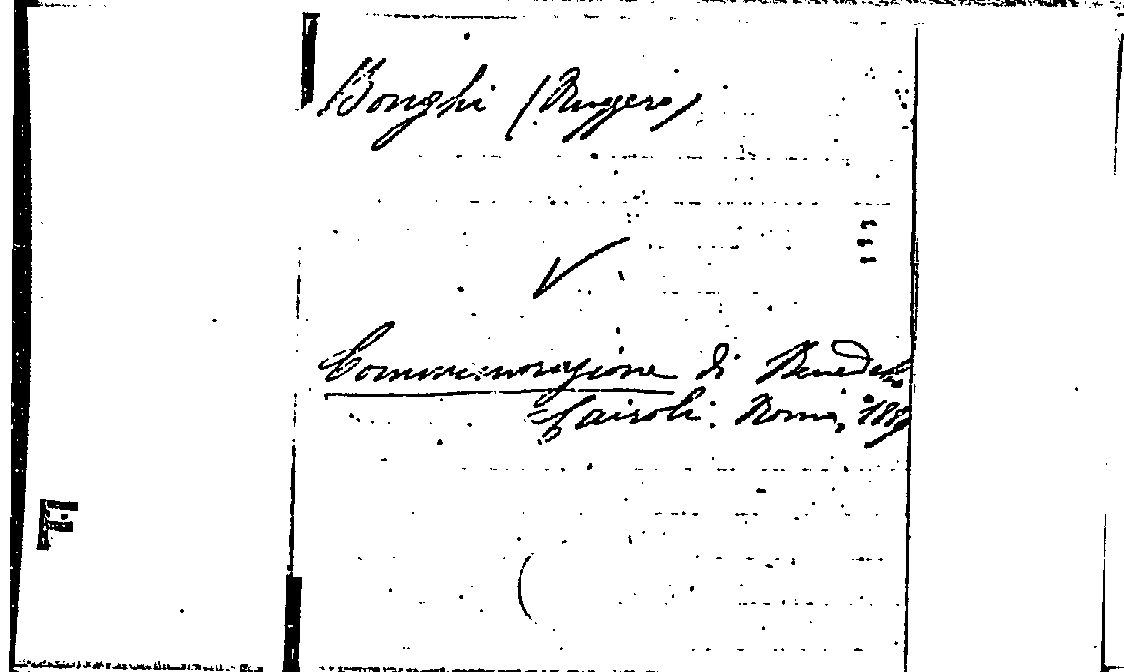 Bonghi (Ruggero)
Commemorazione di Benedetto
Cairoli. Roma, 1889